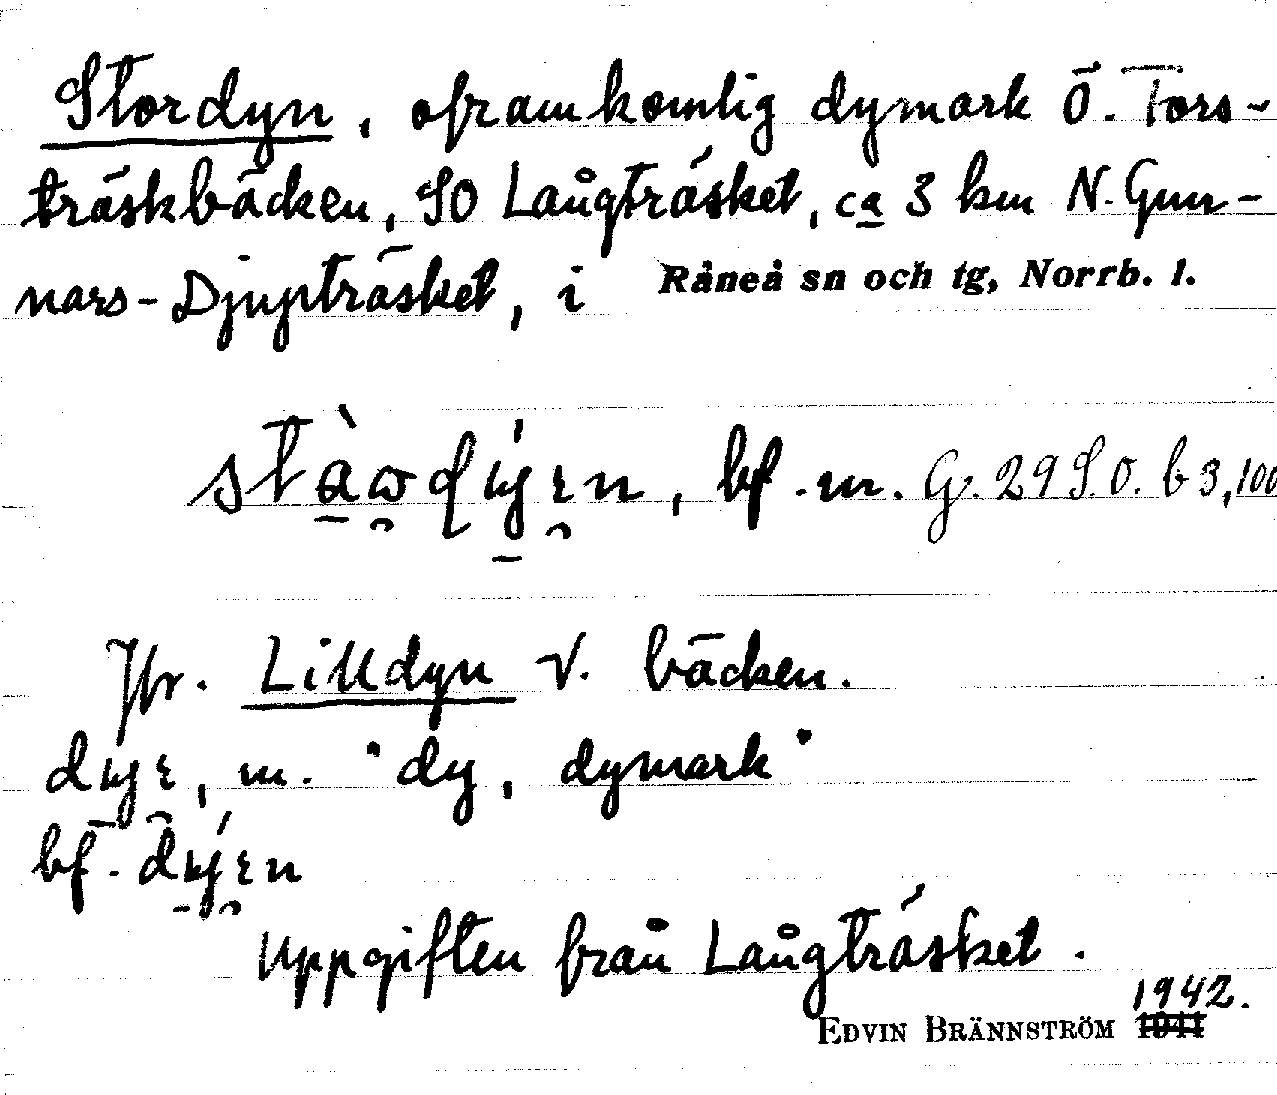 Stordyn, oframkomlig dymark Ö. Tors-
träskbäcken, SO Långträsket, ca 3 km N. Gun-
nars-Djupträsket, i Råneå sn och tg, Norrb. l.
bf. m. G. 29 S.O. b 3,100
Jfr. Lilldyn V. bäcken.
m. "dy, dymark"
bf.
Uppgiften från Långträsket.
1942.
EDVIN BRÄNNSTRÖM 1941